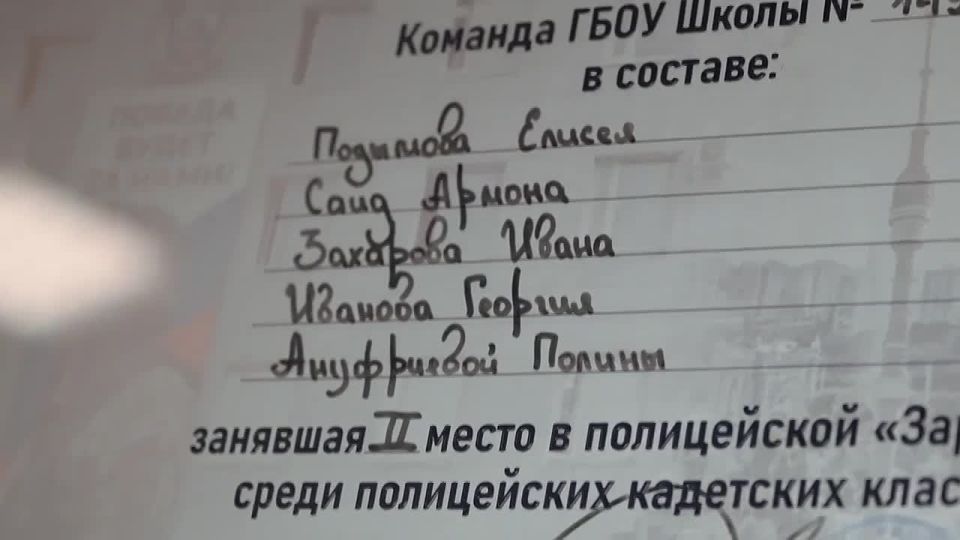 Команда ГБОУ Школы №
в составе:
Подымова Елисея
Саид Армона
Захарова Ивана
Иванова Георгия
Ануфриевой Полины
занявшая II место в полицейской
среди полицейских кадетских